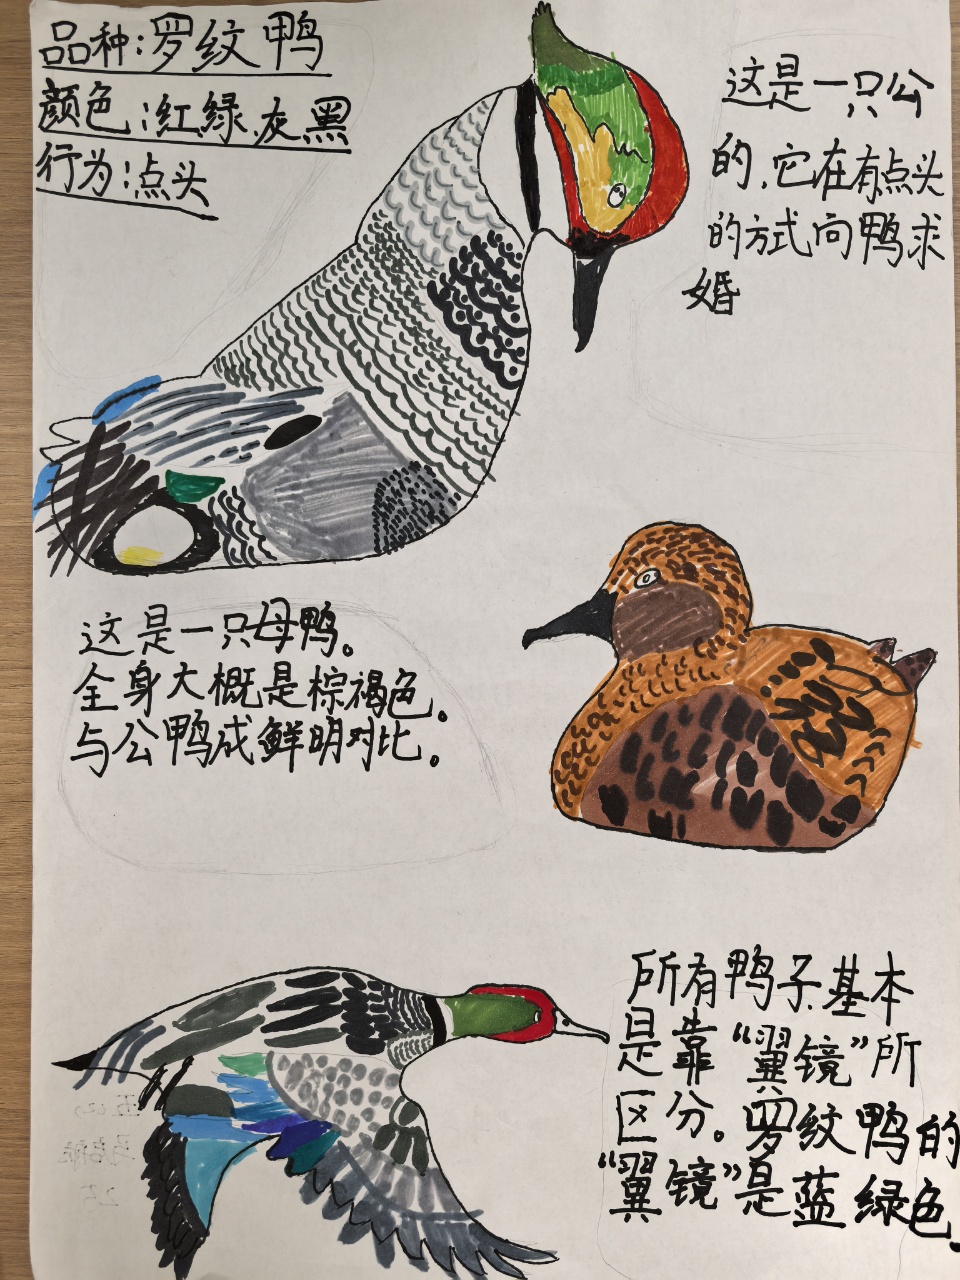 品种:罗纹鸭
颜色:红绿、灰黑
行为:点头
这是一只公
的,它在有点头
的方式向鸭求
婚
这是一只母鸭。
全身大概是棕褐色。
与公鸭成鲜明对比。
所有鸭子基本
是靠“翼镜”所
区分。罗纹鸭的
“翼镜”是蓝绿色.